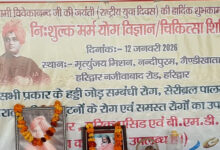 स्वामी विवेकानन्द जी की जयंती (राष्ट्रीय युवा दिवस) की हार्दिक शुभकामनाएं
निःशुल्क मर्म योग विज्ञान/चिकित्सा शि
दिनांक:- 12 जनवरी 2026
स्थान:- मृत्युंजय मिशन, नन्दीपुरम, गैण्डीखाता
हरिद्वार नजीबाबाद रोड, हरिद्वार
सभी प्रकार के हड्डी जोड़ सम्बंधी रोग, सेरीबल पाल
के रोग एवं समस्त रोगों का उप
एवं बी.एम.डी.
उपलब्ध